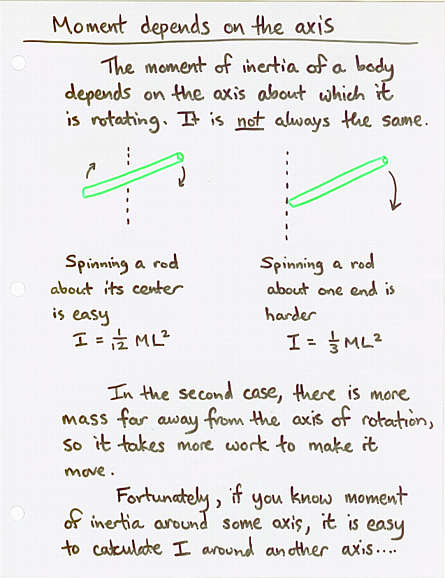 Moment depends on the axis
The moment of inertia of a body
depends on the axis about which it
is rotating. It is not always the same.
Spinning a rod
about its center
is easy
I = 1/12 ML²
Spinning a rod
about one end is
harder
I = 1/3 ML²
In the second case, there is more
mass far away from the axis of rotation,
so it takes more work to make it
move.
Fortunately, if you know moment
of inertia around some axis, it is easy
to calculate I around another axis....